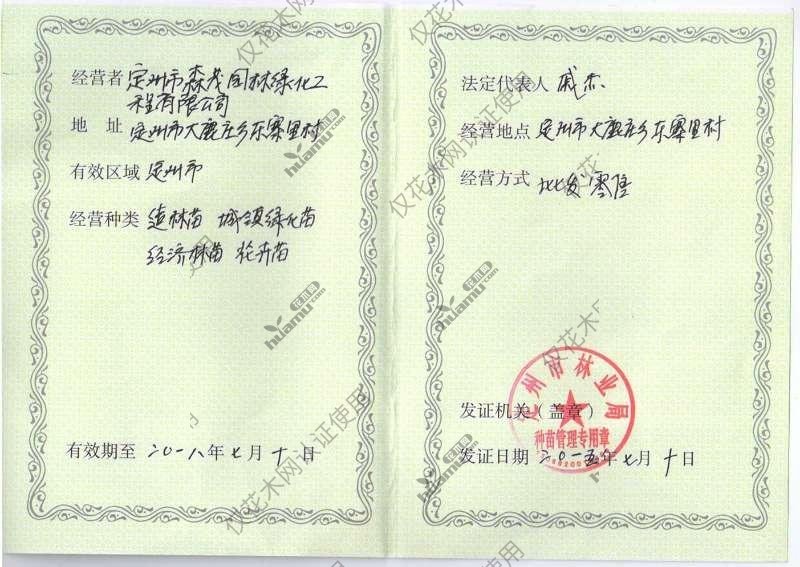 经营者 定州市森茂园林绿化工
程有限公司
地 址 定州市大鹿庄乡东寨里村
有效区域 定州市
经营种类 造林苗 城镇绿化苗
经济林苗 花卉苗
有效期至 二〇一八年七月十一日
法定代表人 戚杰
经营地点 定州市大鹿庄乡东寨里村
经营方式 批发 零售
发证机关（盖章）
定州市林业局
种苗管理专用章
发证日期 二〇一五年七月十日
仅花木网认证使用
花木网
huamu.com